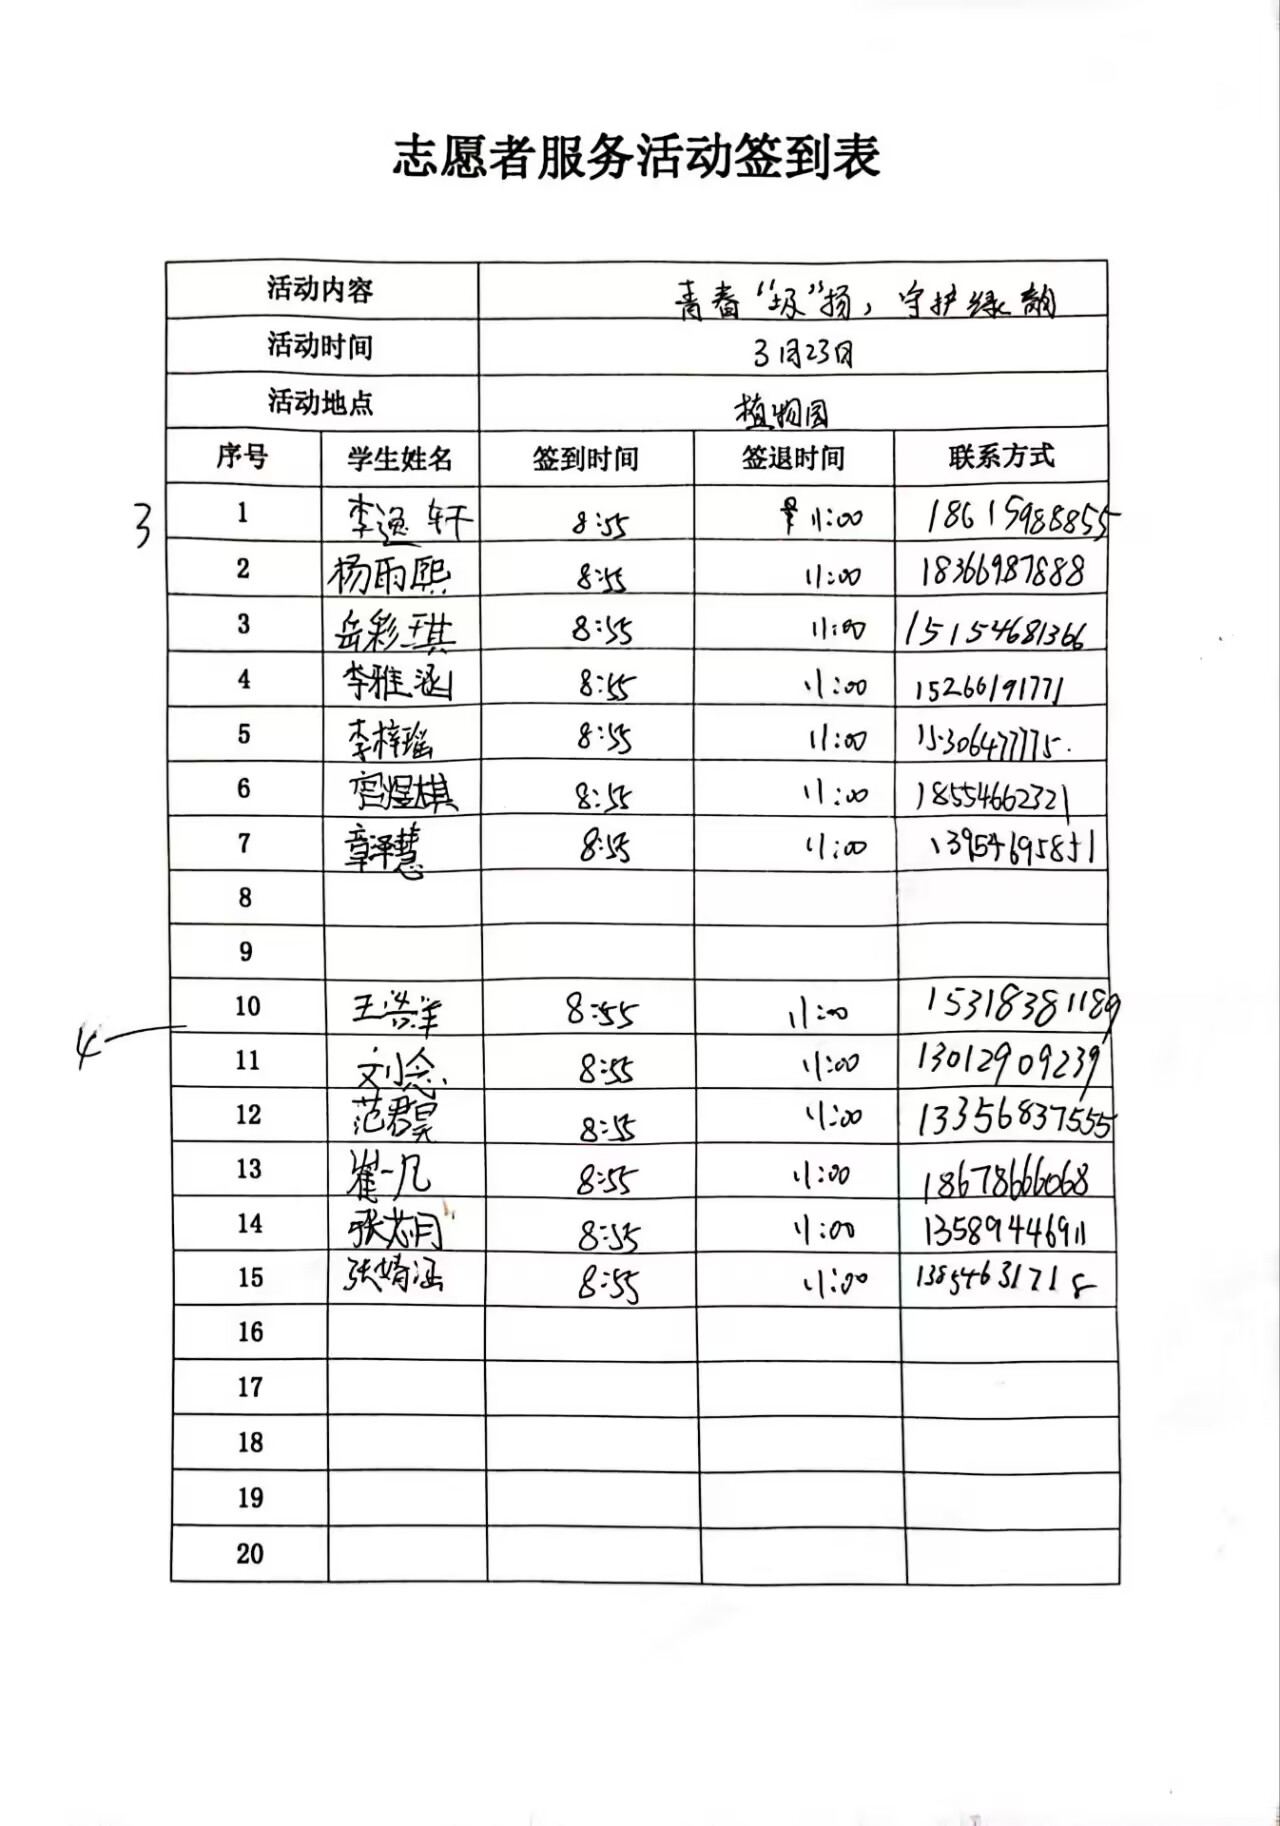 志愿者服务活动签到表
活动内容 青春“圾”扬，守护绿韵
活动时间 3月23日
活动地点 植物园
序号 学生姓名 签到时间 签退时间 联系方式
3
1 李逸轩 8:55 11:00 18615988855
2 杨雨熙 8:55 11:00 18366987888
3 岳彩琪 8:55 11:00 15154681366
4 李雅涵 8:55 11:00 15266191771
5 李梓瑶 8:55 11:00 15306477775.
6 宫煜棋 8:55 11:00 18554662321
7 章泽慧 8:55 11:00 13954695851
8
9
10 王浩洋 8:55 11:00 15318381189
4
11 刘念 8:55 11:00 13012909239
12 范君昊 8:55 11:00 13356837555
13 崔一凡 8:55 11:00 18678666068
14 张芯月 8:55 11:00 13589446911
15 张婧涵 8:55 11:00 13854631718
16
17
18
19
20